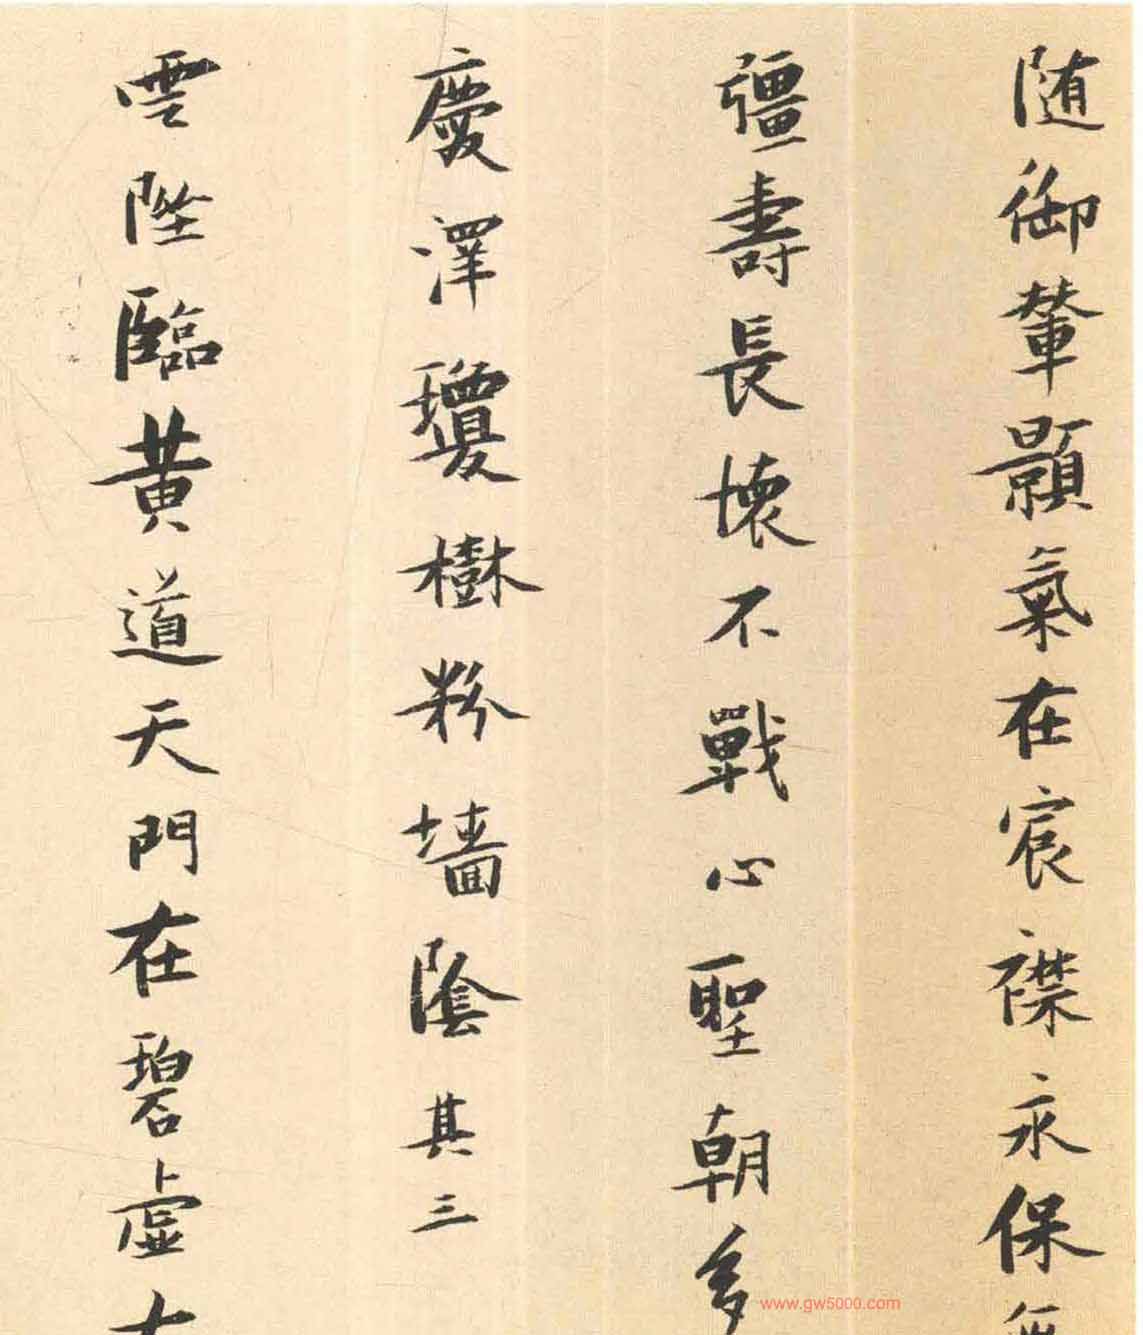 随御輦顥氣在宸襟永保無
疆壽長懷不戰心聖朝多
慶澤瓊樹粉墻陰其三
雲陛臨黃道天門在碧虛大
www.gw5000.com